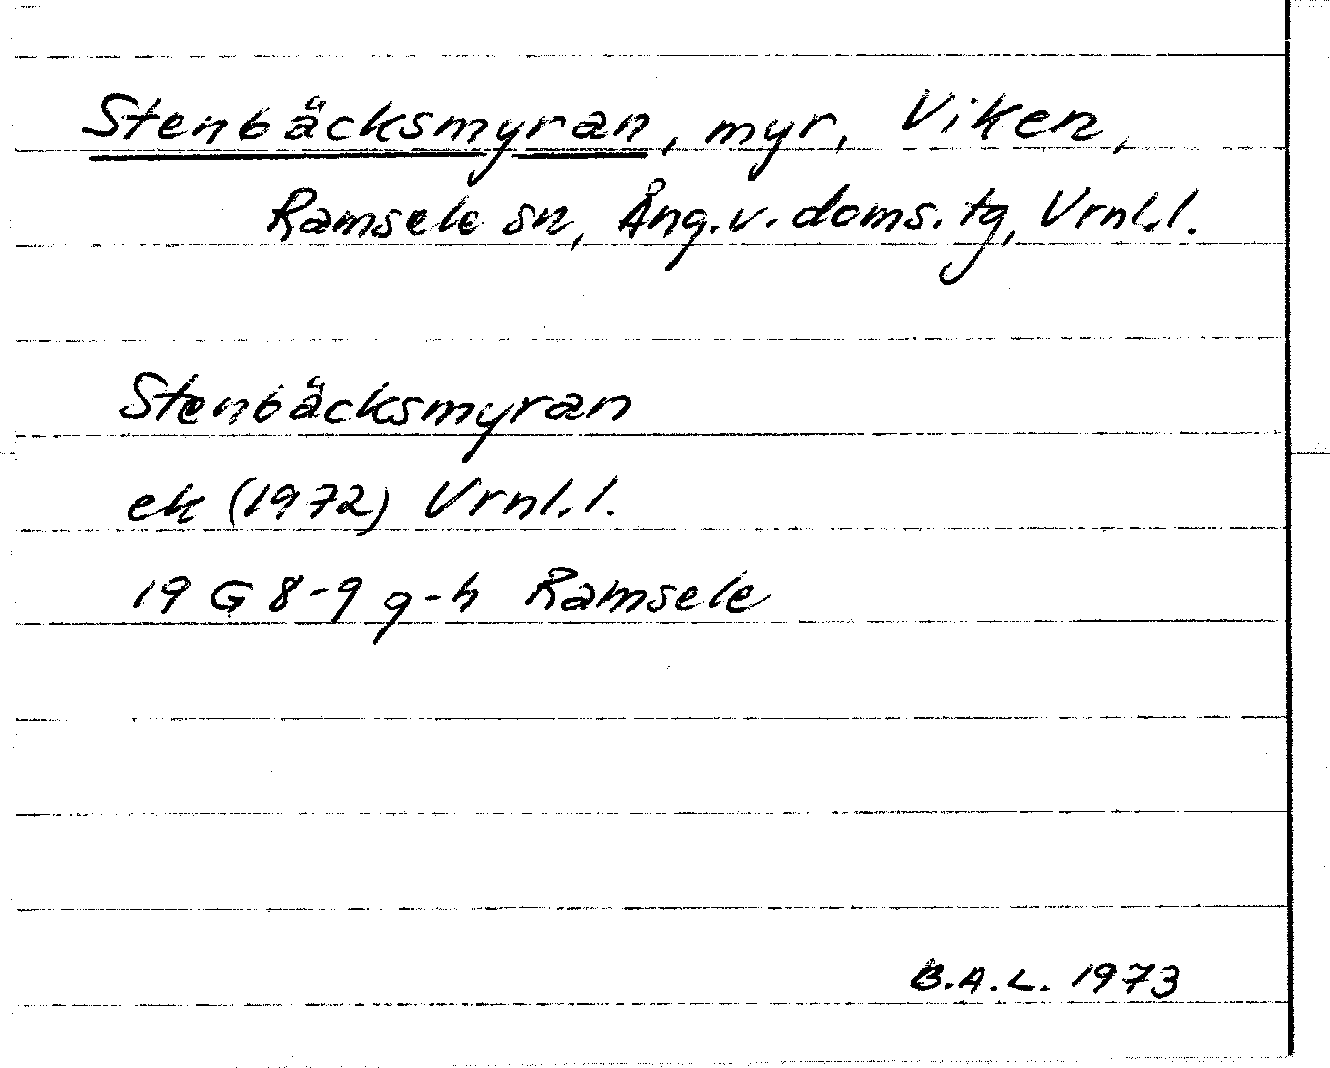 Stenbäcksmyran, myr, Viken,
Ramsele sn, Ång.v.doms.tg, Vrnl.l.
Stenbäcksmyran
ek (1972) Vrnl.l.
19 G 8-9 g-h Ramsele
B.A.L. 1973